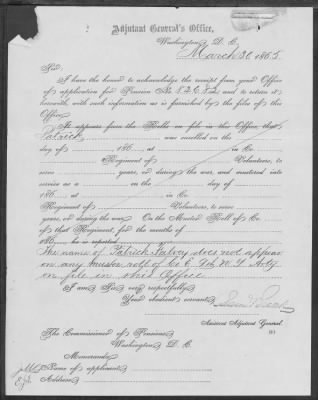 Adjutant General's Office,
Washington, D. C.
March 30, 1865
Sir:
I have the honor to acknowledge the receipt from your Office
of application for Pension No. 82682 and to return it
herewith, with such information as is furnished by the files of this
Office.
It appears from the Rolls on file in this Office, that
Patrick was enrolled on the
day of 186 , at in Co.
Regiment of Volunteers, to
serve years, or during the war, and mustered into
service as a on the day of
186 , at , in Co.
Regiment of Volunteers, to serve
years, or during the war. On the Muster Roll of Co.
of that Regiment, for the months of
186 , he is reported
The name of Patrick does not appear
on any muster roll of Co. C 9th N.Y. Arty
on file in this Office
I am, Sir, very respectfully,
Your obedient servant,
Assistant Adjutant General.
The Commissioner of Pensions,
Washington, D. C.
Memoranda:
Name of applicant,
Address